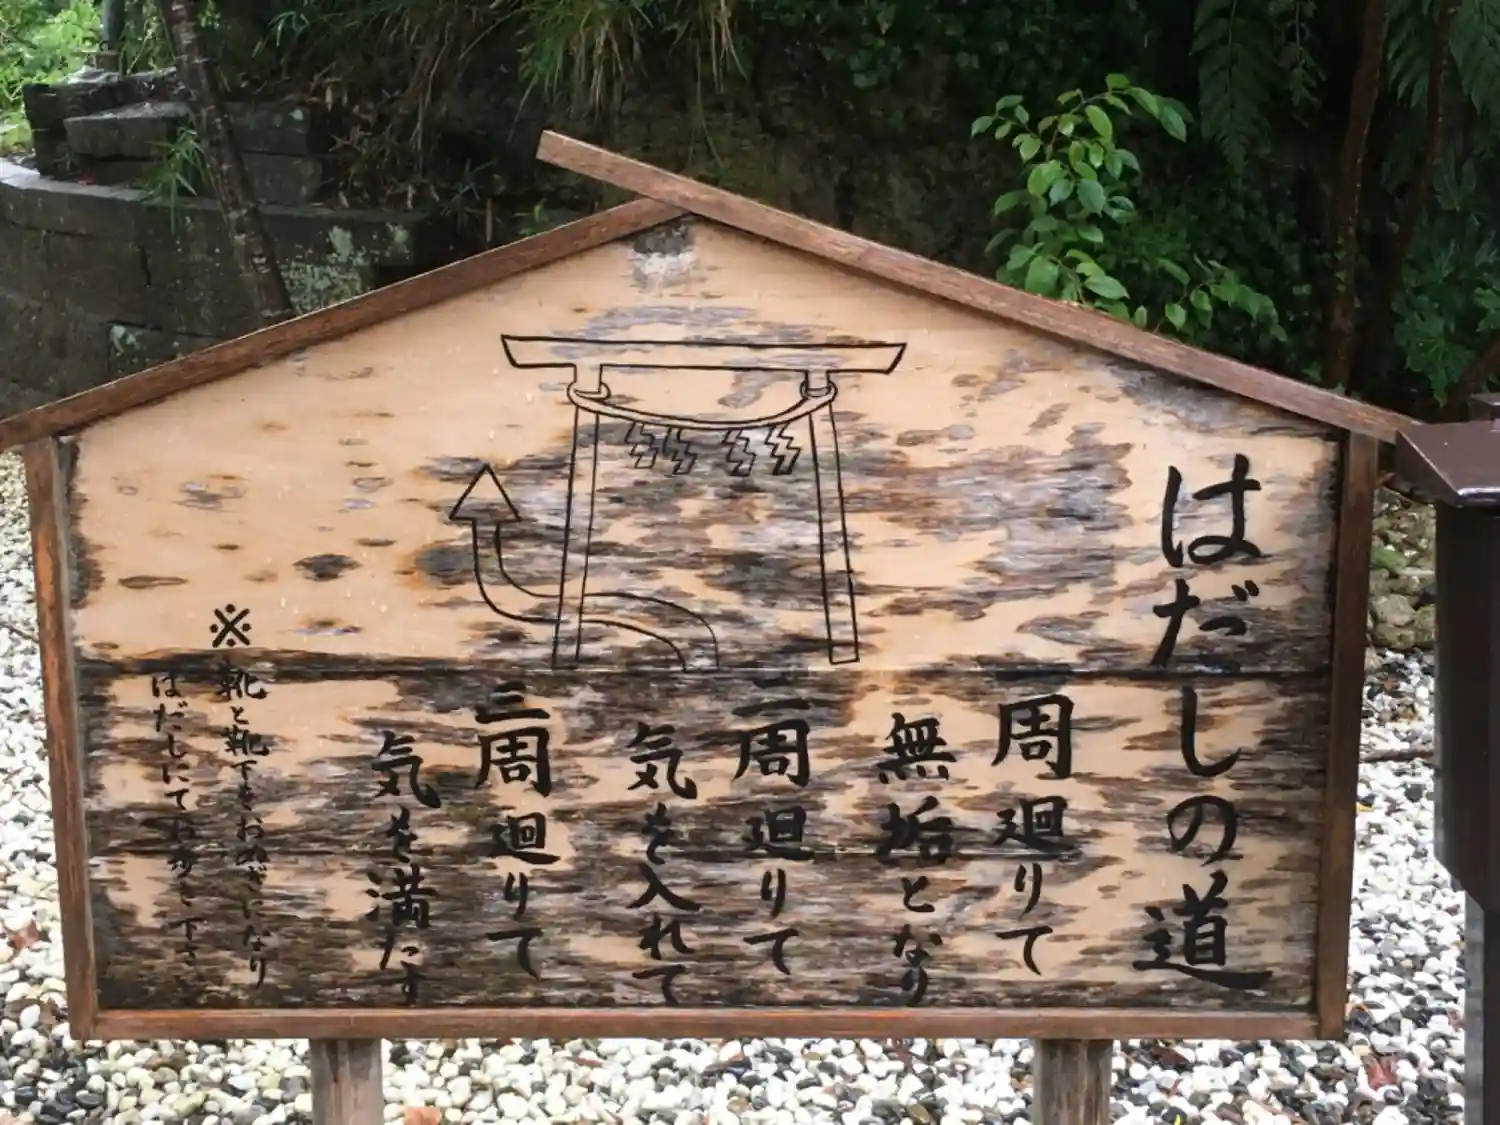 はだしの道
周廻りて
無垢となり
二周廻りて
気を入れて
三周廻りて
気を満たす
※靴と靴下をおぬぎになり
はだしにてお踏み下さい